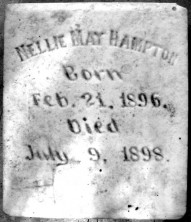 NELLIE MAY HAMPTON
Born
Feb. 21, 1896.
Died
July 9, 1898.